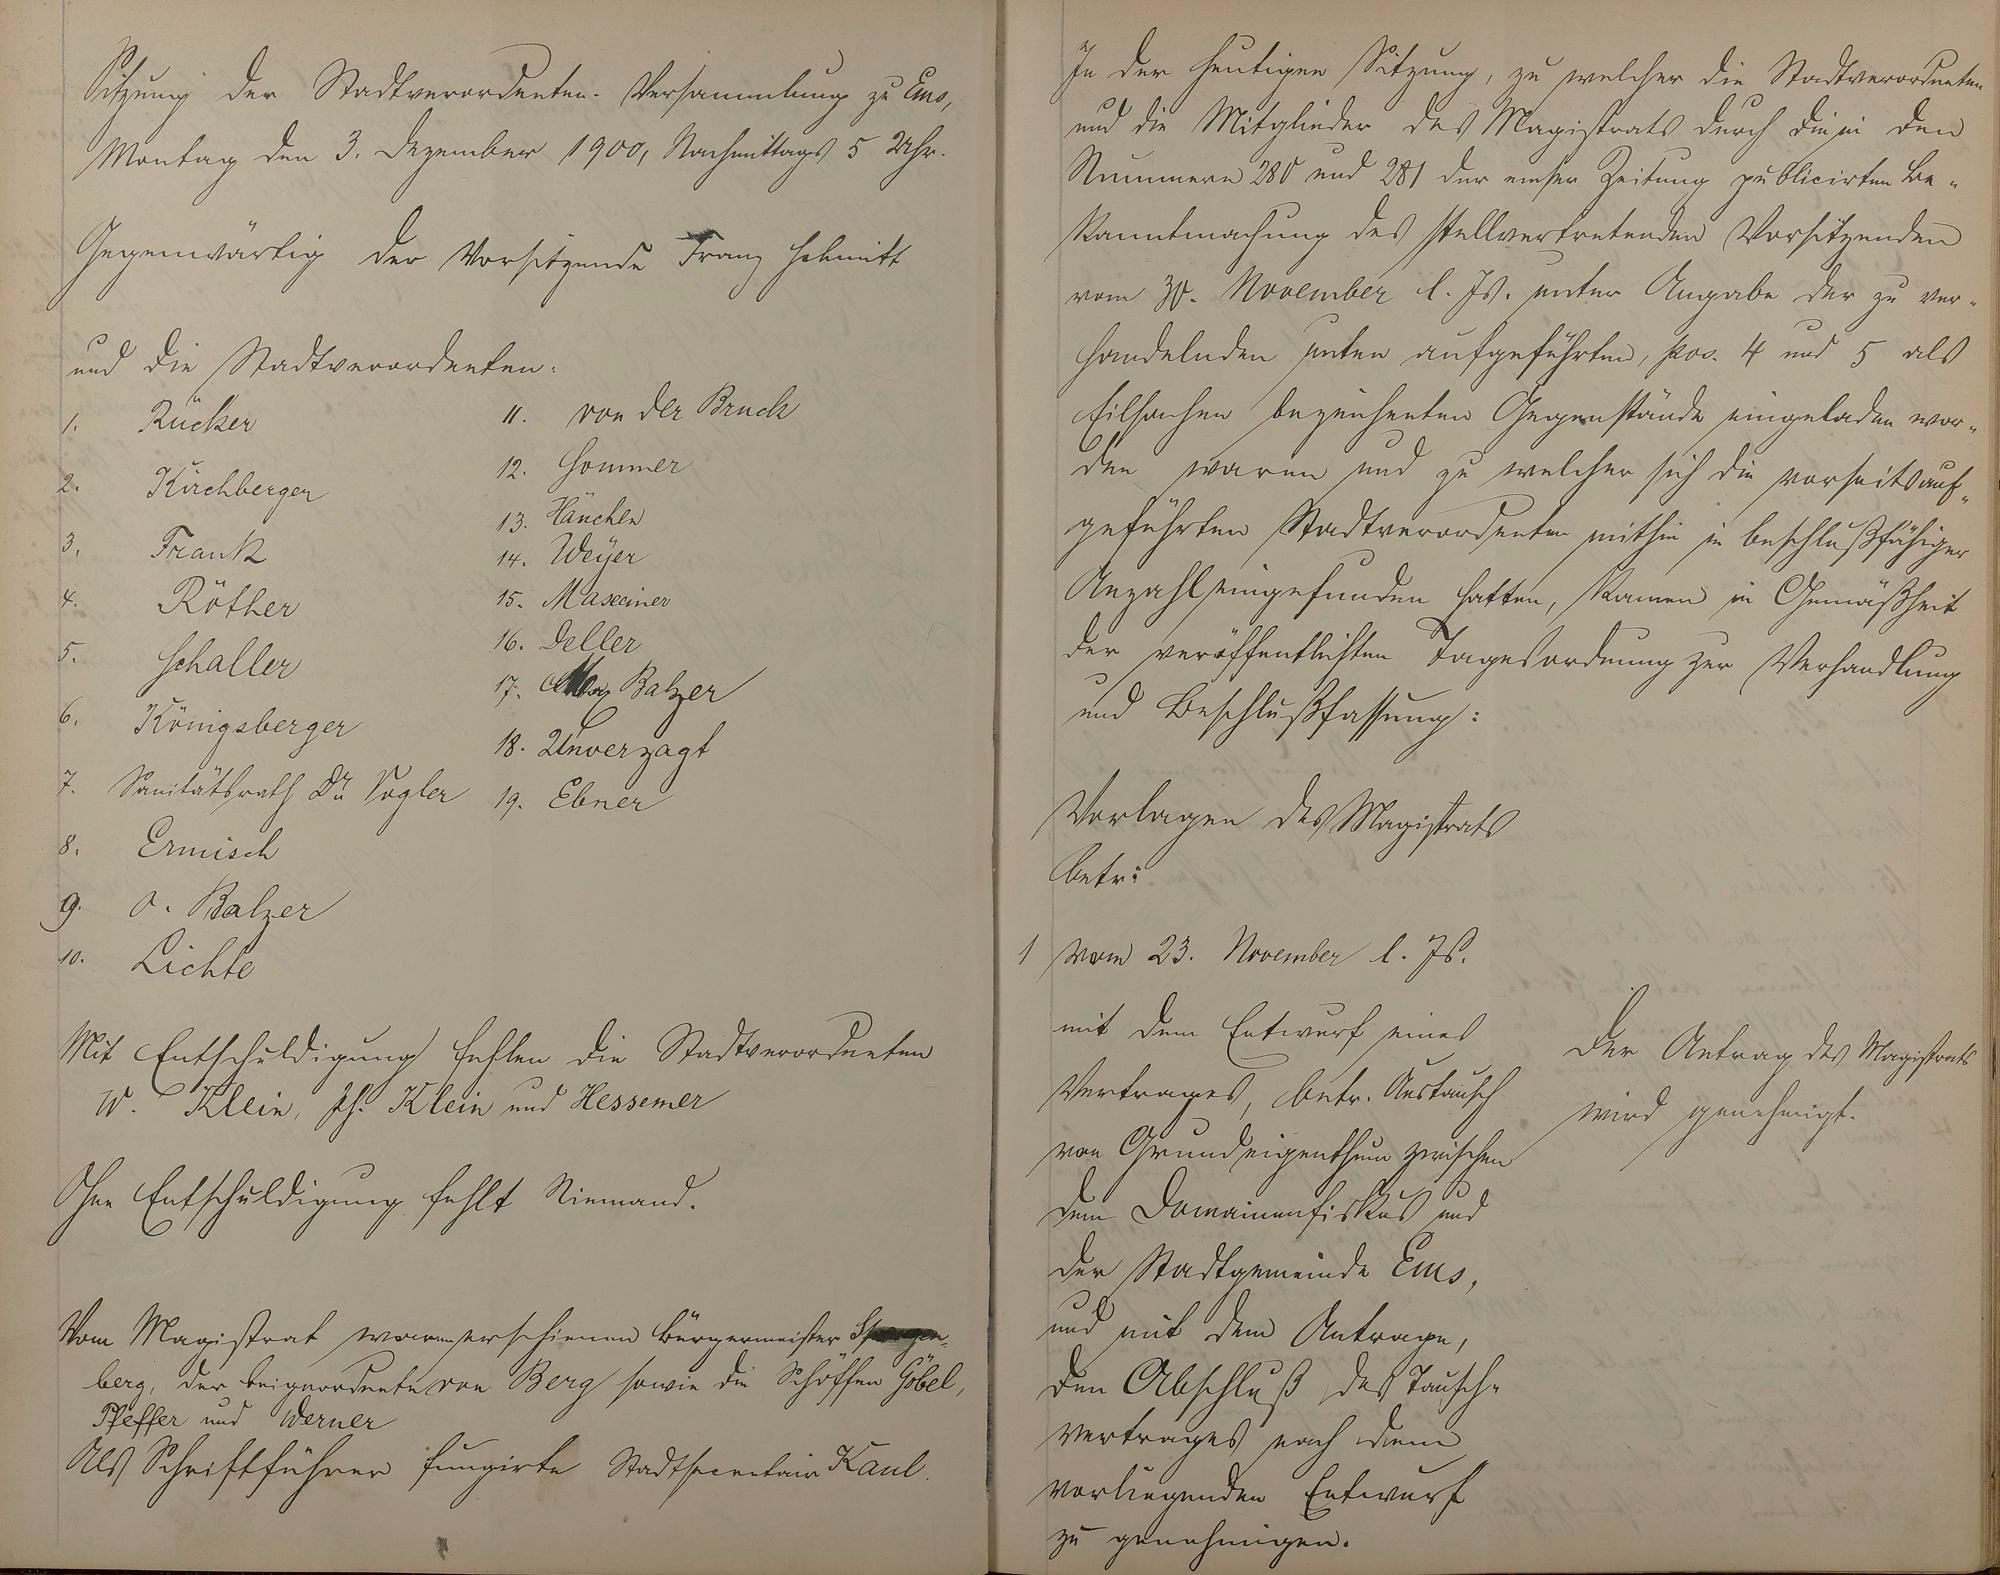 Sitzung der Stadtverordneten-Versammlung zu Ems,
Montag den 3. Dezember 1900, Nachmittags 5 Uhr.
Gegenwärtig der Vorsitzende Franz Schmitt
und die Stadtverordneten:
1. Rücker
2. Kirchberger
3. Frank
4. Röther
5. Schaller
6. Königsberger
7. Sanitätsrath Dr. Vogler
8. Ermisch
9. O. Balzer
10. Lichte
11. von der Bruck
12. Sommer
13. Hänchen
14. Weyer
15. Maseciner
16. Deller
17. Balzer
18. Unverzagt
19. Ebner
Mit Entschuldigung fehlen die Stadtverordneten
W. Klein, Ph. Klein und Hessemer
Ohne Entschuldigung fehlt Niemand.
Vom Magistrat waren erschienen Bürgermeister Spangen-
berg, der Beigeordnete von Berg sowie die Schöffen Göbel,
Pfeffer und Werner
Als Schriftführer fungirte Stadtsecretair Kaul.
In der heutigen Sitzung, zu welcher die Stadtverordneten
und die Mitglieder des Magistrats durch die in den
Nummern 280 und 281 der Emser Zeitung publicirten Be-
kanntmachung des stellvertretenden Vorsitzenden
vom 30. November l. Js. unter Angabe der zu ver-
handelnden unten aufgeführten, pos. 4 und 5 als
Eilsachen bezeichneten Gegenstände eingeladen wor-
den waren und zu welcher sich die vorseits auf-
geführten Stadtverordneten mithin in beschlußfähiger
Anzahl eingefunden hatten, kamen in Gemäßheit
der veröffentlichten Tagesordnung zur Verhandlung
und Beschlußfassung:
Vorlagen des Magistrats
betr:
1 vom 23. November l. Js.
mit dem Entwurf eines
Vertrages, betr. Austausch
von Grundeigenthum zwischen
dem Domainenfiskus und
der Stadtgemeinde Ems,
und mit dem Antrage,
den Abschluß des Tausch-
vertrages nach dem
vorliegenden Entwurf
zu genehmigen.
Der Antrag des Magistrats
wird genehmigt.